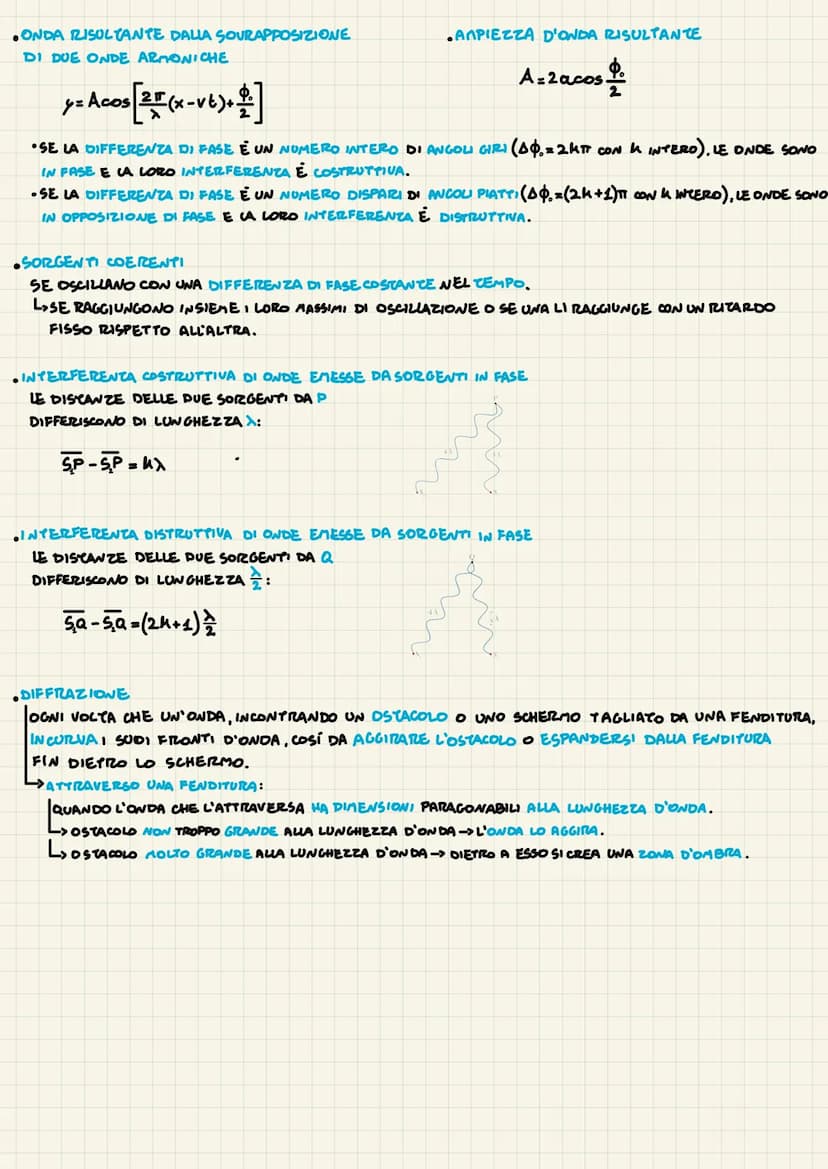 • ONDA RISULTANTE DALLA SOVRAPPOSIZIONE
DI DUE ONDE ARMONICHE
y = A cos[2π/λ (x - vt) + ϕ₀/2]
• AMPIEZZA D'ONDA RISULTANTE
A = 2a cos ϕ₀/2
• SE LA DIFFERENZA DI FASE É UN NUMERO INTERO DI ANGOLI GIRI (Δϕ₀ = 2kπ CON k INTERO), LE ONDE SONO
IN FASE E LA LORO INTERFERENZA É COSTRUTTIVA.
• SE LA DIFFERENZA DI FASE É UN NUMERO DISPARI DI ANGOLI PIATTI (Δϕ₀ = (2k+1)π CON k INTERO), LE ONDE SONO
IN OPPOSIZIONE DI FASE E LA LORO INTERFERENZA É DISTRUTTIVA.
• SORGENTI COERENTI
SE OSCILLANO CON UNA DIFFERENZA DI FASE COSTANTE NEL TEMPO.
↳ SE RAGGIUNGONO INSIEME I LORO MASSIMI DI OSCILLAZIONE O SE UNA LI RAGGIUNGE CON UN RITARDO
FISSO RISPETTO ALL'ALTRA.
• INTERFERENZA COSTRUTTIVA DI ONDE EMESSE DA SORGENTI IN FASE
LE DISTANZE DELLE DUE SORGENTI DA P
DIFFERISCONO DI LUNGHEZZA λ:
S₂P - S₁P = kλ
• INTERFERENZA DISTRUTTIVA DI ONDE EMESSE DA SORGENTI IN FASE
LE DISTANZE DELLE DUE SORGENTI DA Q
DIFFERISCONO DI LUNGHEZZA λ/2:
S₂Q - S₁Q = (2k+1) λ/2
• DIFFRAZIONE
OGNI VOLTA CHE UN'ONDA, INCONTRANDO UN OSTACOLO O UNO SCHERMO TAGLIATO DA UNA FENDITURA,
INCURVA I SUOI FRONTI D'ONDA, COSÍ DA AGGIRARE L'OSTACOLO O ESPANDERSI DALLA FENDITURA
FIN DIETRO LO SCHERMO.
→ ATTRAVERSO UNA FENDITURA:
QUANDO L'ONDA CHE L'ATTRAVERSA HA DIMENSIONI PARAGONABILI ALLA LUNGHEZZA D'ONDA.
↳ OSTACOLO NON TROPPO GRANDE ALLA LUNGHEZZA D'ONDA → L'ONDA LO AGGIRA.
↳ OSTACOLO MOLTO GRANDE ALLA LUNGHEZZA D'ONDA → DIETRO A ESSO SI CREA UNA ZONA D'OMBRA.